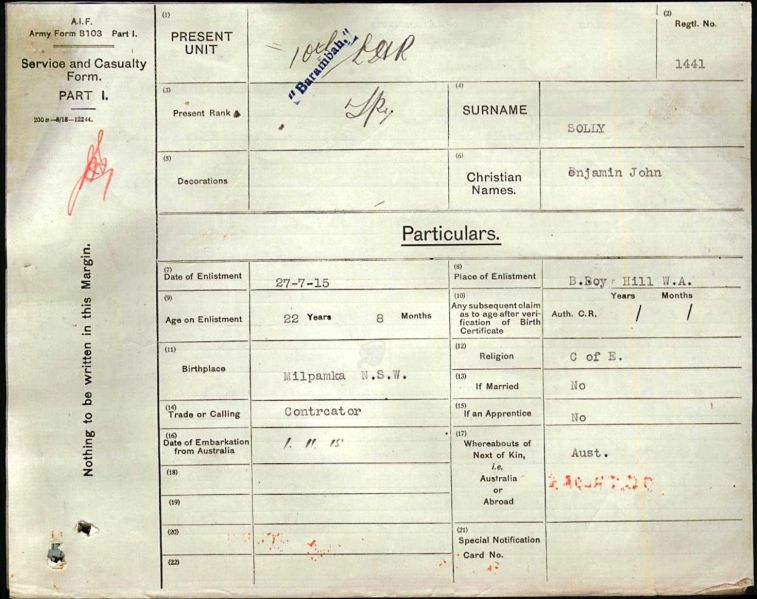 A.I.F.
Army Form B103 Part I.
Service and Casualty
Form.
PART I.
200m—8/18—12244.
Nothing to be written in this Margin.
(1)
PRESENT
UNIT
10th LHR
"Barambah,"
(2)
Regtl. No.
1441
(3)
Present Rank
(4)
SURNAME
SOLLY
(5)
Decorations
(6)
Christian
Names.
enjamin John
Particulars.
(7)
Date of Enlistment
27-7-15
(8)
Place of Enlistment
Hill W.A.
(9)
Age on Enlistment
22 Years 8 Months
(10)
Any subsequent claim
as to age after veri-
fication of Birth
Certificate
Years Months
Auth. C.R. / /
(11)
Birthplace
Milpamka N.S.W.
(12)
Religion
C of E.
(13)
If Married
No
(14)
Trade or Calling
Contrcator
(15)
If an Apprentice
No
(16)
Date of Embarkation
from Australia
1. 11. 15
(17)
Whereabouts of
Next of Kin,
i.e.
Australia
or
Abroad
Aust.
(18)
(19)
(20)
(21)
Special Notification
Card No.
(22)